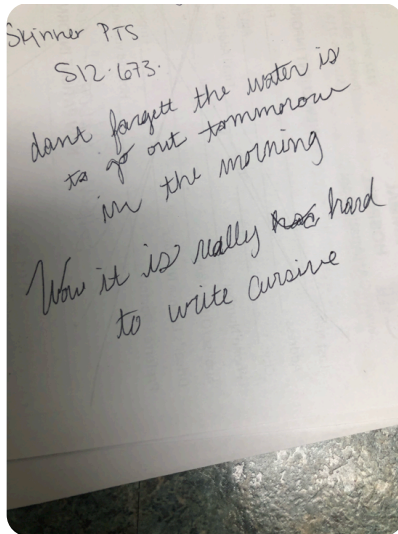 Skinner PTS
S12.673.
dant fargett the water is
to go out tommorow
in the morning
Wow it is really hard
to write cursive